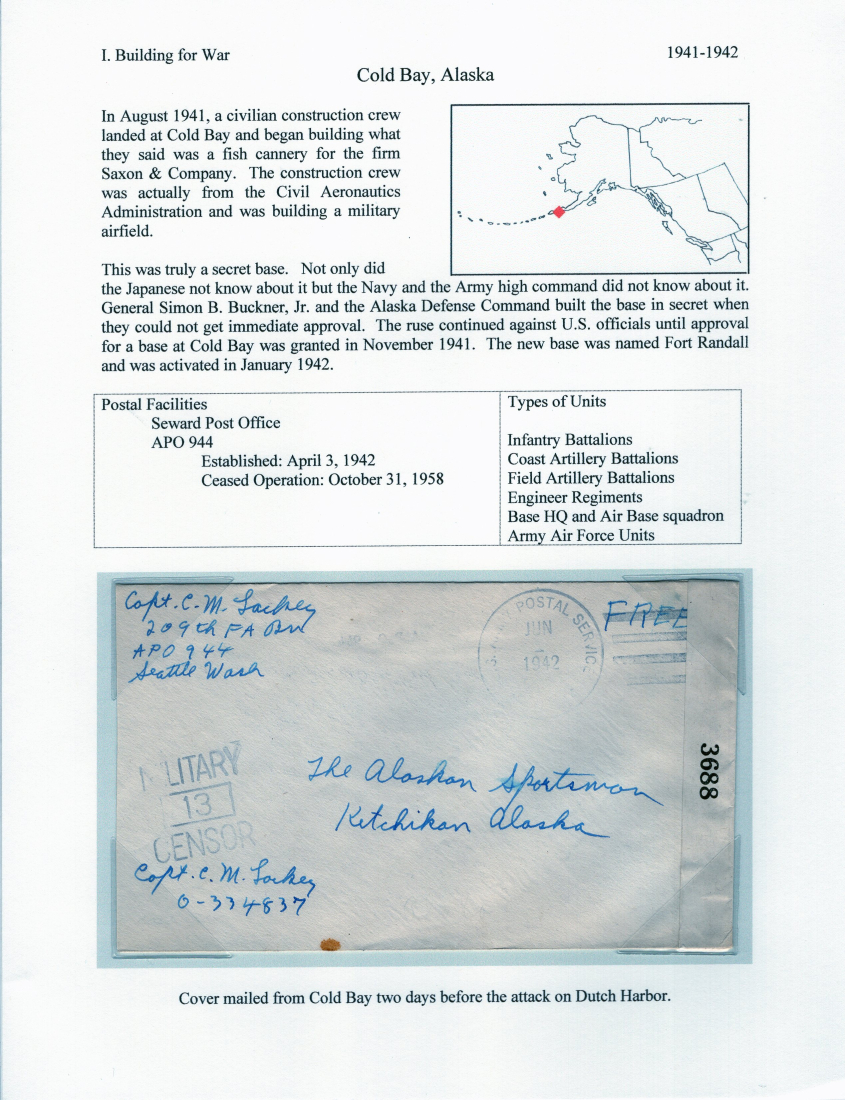 I. Building for War
1941-1942
Cold Bay, Alaska
In August 1941, a civilian construction crew
landed at Cold Bay and began building what
they said was a fish cannery for the firm
Saxon & Company. The construction crew
was actually from the Civil Aeronautics
Administration and was building a military
airfield.
This was truly a secret base. Not only did
the Japanese not know about it but the Navy and the Army high command did not know about it.
General Simon B. Buckner, Jr. and the Alaska Defense Command built the base in secret when
they could not get immediate approval. The ruse continued against U.S. officials until approval
for a base at Cold Bay was granted in November 1941. The new base was named Fort Randall
and was activated in January 1942.
Postal Facilities
Seward Post Office
APO 944
Established: April 3, 1942
Ceased Operation: October 31, 1958
Types of Units
Infantry Battalions
Coast Artillery Battalions
Field Artillery Battalions
Engineer Regiments
Base HQ and Air Base squadron
Army Air Force Units
Capt. C. M. Lackey
209th FA Bn
APO 944
Seattle Wash
POSTAL SERVICE
JUN
1942
FREE
MILITARY
13
CENSOR
The Alaskan Sportsman
Ketchikan Alaska
3688
Capt. C. M. Lackey
O-334837
Cover mailed from Cold Bay two days before the attack on Dutch Harbor.